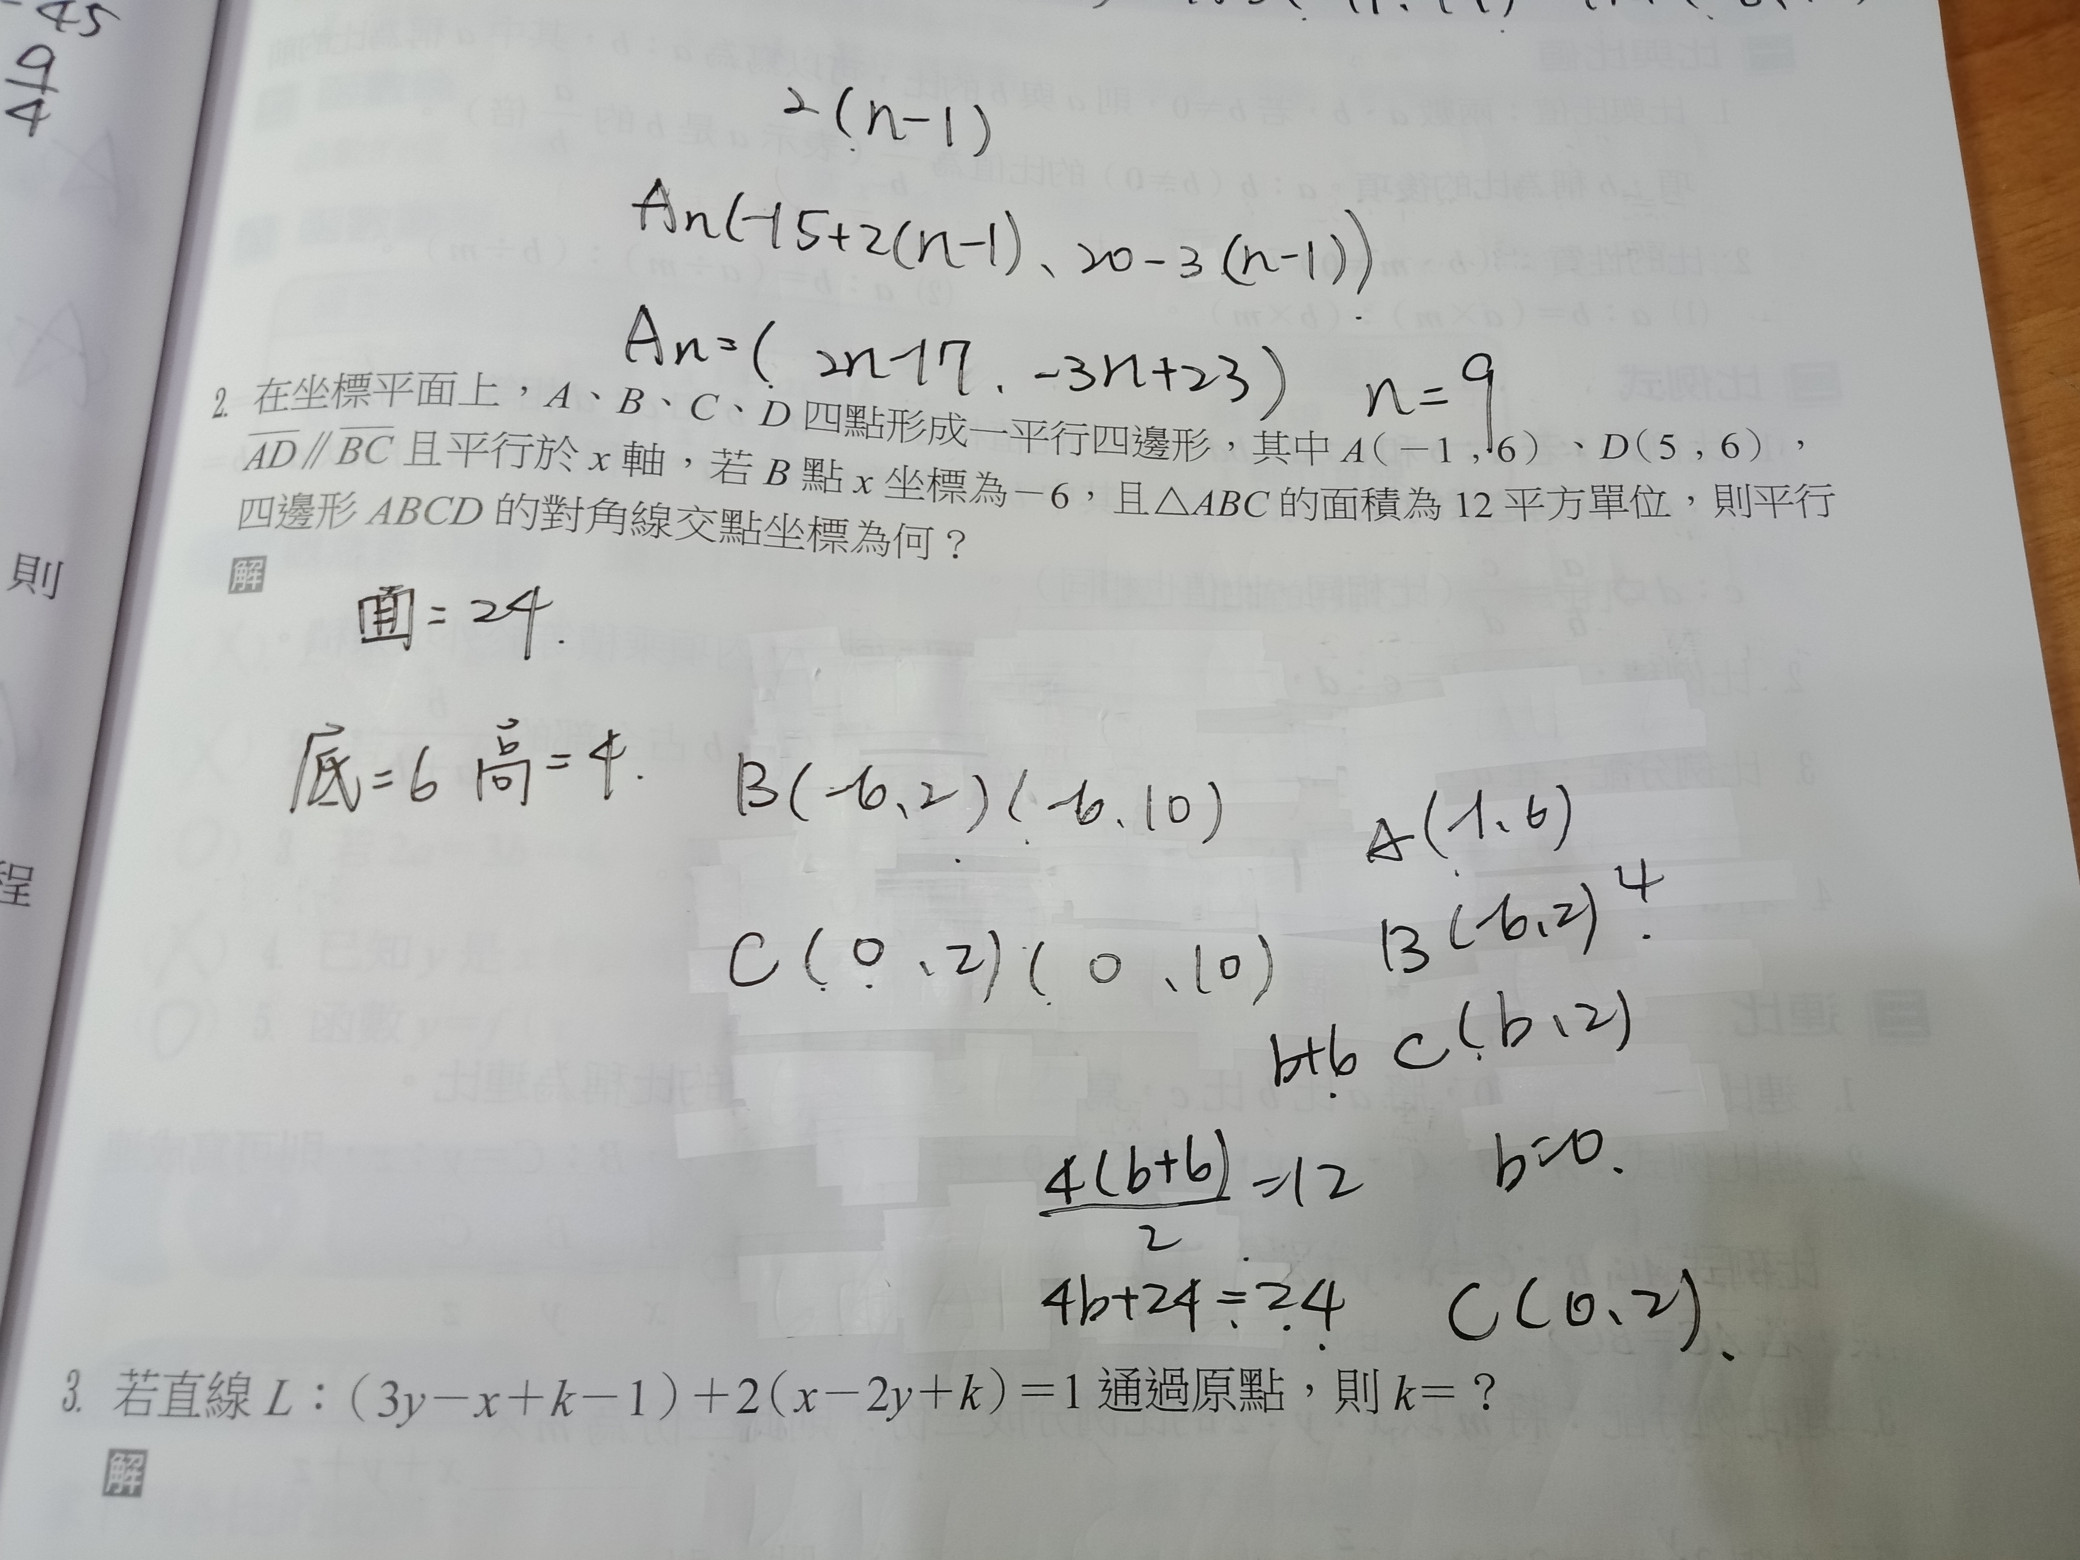 -45
9
4
2(n-1)
An(-15+2(n-1)、20-3(n-1))
An=( 2n-17、-3n+23) n=9
2. 在坐標平面上，A、B、C、D 四點形成一平行四邊形，其中 A(－1 , 6)、D(5 , 6)，
AD∥BC 且平行於 x 軸，若 B 點 x 坐標為－6，且△ABC 的面積為 12 平方單位，則平行
四邊形 ABCD 的對角線交點坐標為何？
解
則
面=24.
底=6 高=4.
B(-6、2)(-6、10)
A(-1、6)
程
B(-6、2) 4
C(0、2)(0、10)
b+6 C(b、2)
4(b+6)
2
=12
b=0.
4b+24=24
C(0、2).
3. 若直線 L：(3y－x＋k－1)＋2(x－2y＋k)＝1 通過原點，則 k＝？
解